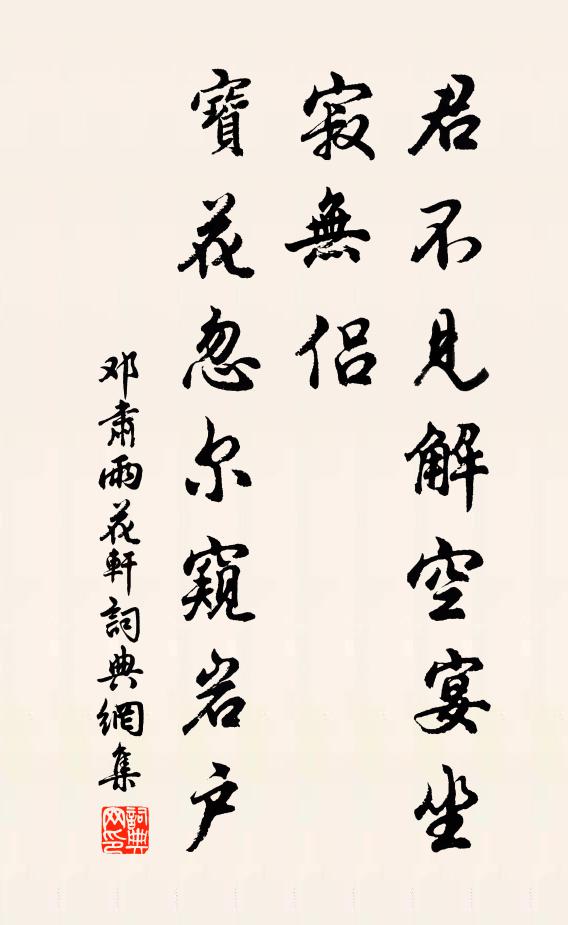 君不見解空宴坐
寂無侣
寶花忽尔窺岩户
邓肅雨花軒詞典網集
詞典网印